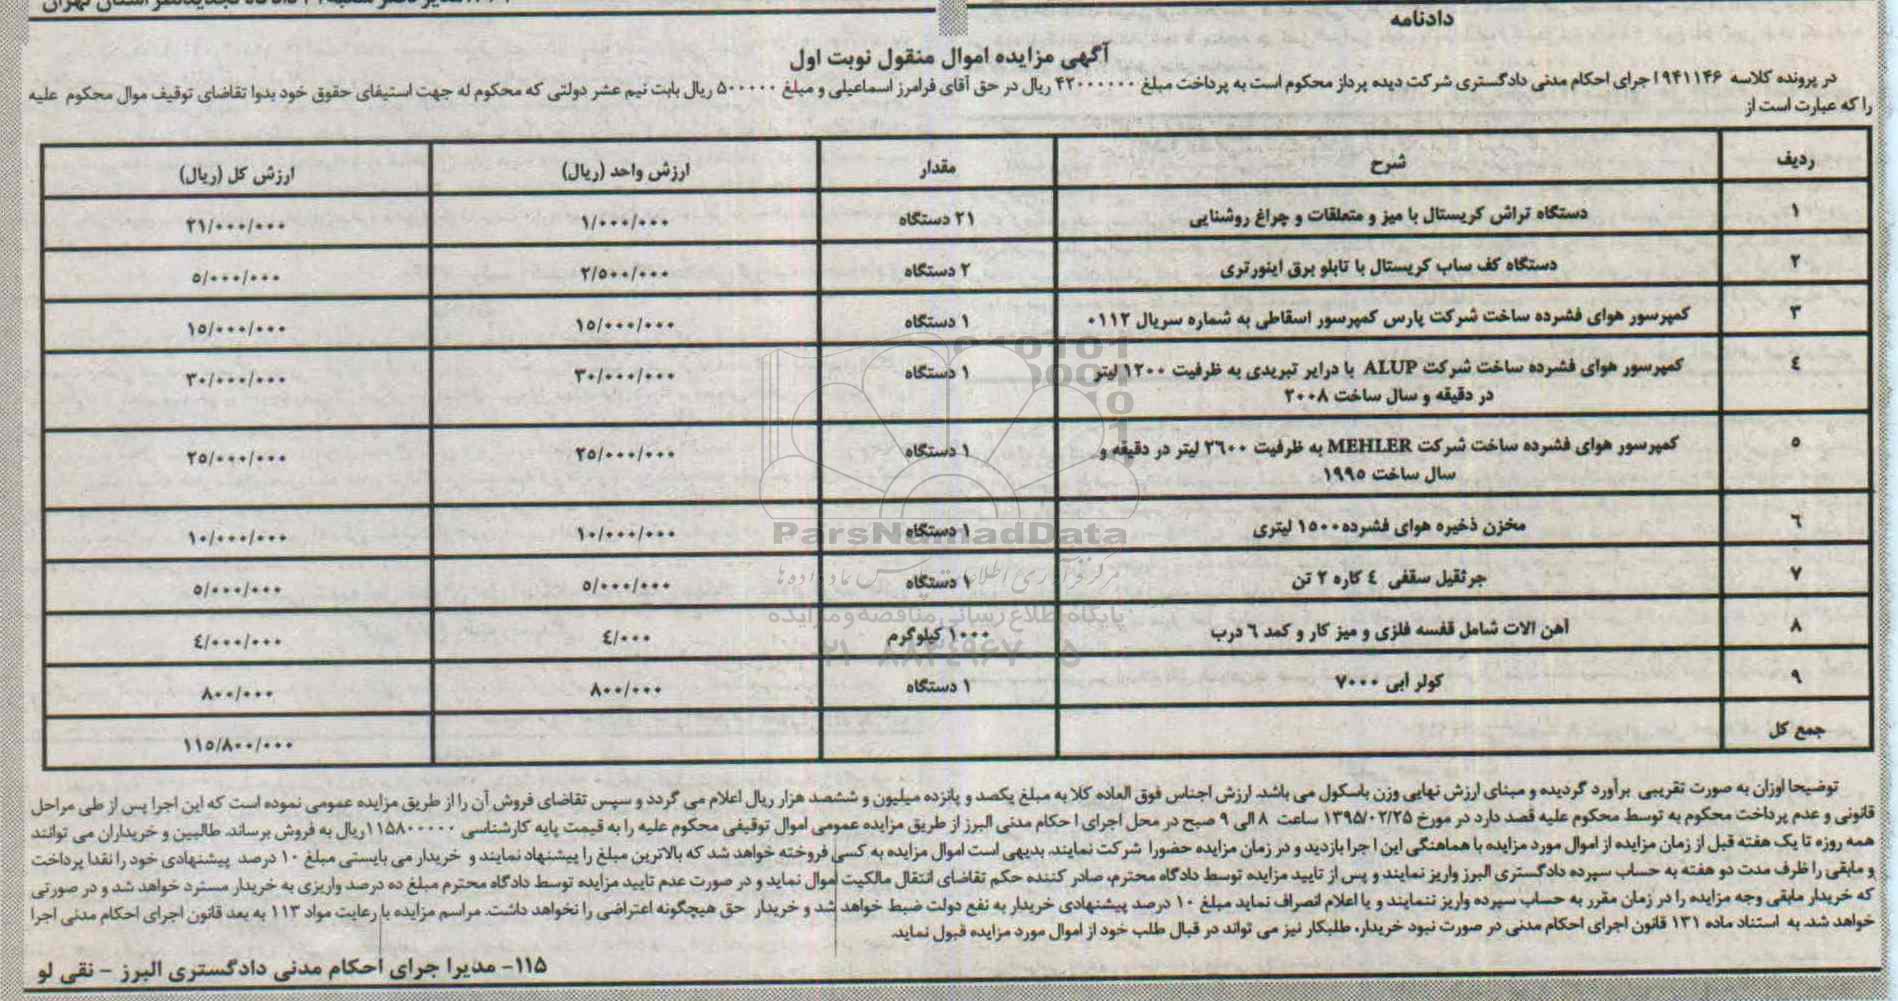 دادنامه
آگهی مزایده اموال منقول نوبت اول
در پرونده کلاسه ۹۴۱۱۴۶ ا جرای احکام مدنی دادگستری شرکت دیده پرداز محکوم است به پرداخت مبلغ ۴۲۰۰۰۰۰۰ ریال در حق آقای فرامرز اسماعیلی و مبلغ ۵۰۰۰۰۰ ریال بابت نیم عشر دولتی که محکوم له جهت استیفای حقوق خود بدوا تقاضای توقیف موال محکوم علیه
را که عبارت است از
ردیف شرح مقدار ارزش واحد (ریال) ارزش کل (ریال)
۱ دستگاه تراش کریستال با میز و متعلقات و چراغ روشنایی ۲۱ دستگاه ۱/۰۰۰/۰۰۰ ۲۱/۰۰۰/۰۰۰
۲ دستگاه کف ساب کریستال با تابلو برق اینورتری ۲ دستگاه ۲/۵۰۰/۰۰۰ ۵/۰۰۰/۰۰۰
۳ کمپرسور هوای فشرده ساخت شرکت پارس کمپرسور اسقاطی به شماره سریال ۰۱۱۲ ۱ دستگاه ۱۵/۰۰۰/۰۰۰ ۱۵/۰۰۰/۰۰۰
٤ کمپرسور هوای فشرده ساخت شرکت ALUP با درایر تبریدی به ظرفیت ۱۲۰۰ لیتر ۱ دستگاه ۳۰/۰۰۰/۰۰۰ ۳۰/۰۰۰/۰۰۰
در دقیقه و سال ساخت ۲۰۰۸
۵ کمپرسور هوای فشرده ساخت شرکت MEHLER به ظرفیت ۲٦۰۰ لیتر در دقیقه و ۱ دستگاه ۲۵/۰۰۰/۰۰۰ ۲۵/۰۰۰/۰۰۰
سال ساخت ۱۹۹۵
٦ مخزن ذخیره هوای فشرده۱۵۰۰ لیتری ۱ دستگاه ۱۰/۰۰۰/۰۰۰ ۱۰/۰۰۰/۰۰۰
۷ جرثقیل سقفی ٤ کاره ۲ تن ۱ دستگاه ۵/۰۰۰/۰۰۰ ۵/۰۰۰/۰۰۰
۸ آهن الات شامل قفسه فلزی و میز کار و کمد ٦ درب ۱۰۰۰ کیلوگرم ٤/۰۰۰ ٤/۰۰۰/۰۰۰
۹ کولر آبی ۷۰۰۰ ۱ دستگاه ۸۰۰/۰۰۰ ۸۰۰/۰۰۰
جمع کل ۱۱۵/۸۰۰/۰۰۰
توضیحا اوزان به صورت تقریبی برآورد گردیده و مبنای ارزش نهایی وزن باسکول می باشد. ارزش اجناس فوق العاده کلا به مبلغ یکصد و پانزده میلیون و ششصد هزار ریال اعلام می گردد و سپس تقاضای فروش آن را از طریق مزایده عمومی نموده است که این اجرا پس از طی مراحل
قانونی و عدم پرداخت محکوم به توسط محکوم علیه قصد دارد در مورخ ۱۳۹۵/۰۲/۲۵ ساعت ۸ الی ۹ صبح در محل اجرای ا حکام مدنی البرز از طریق مزایده عمومی اموال توقیفی محکوم علیه را به قیمت پایه کارشناسی ۱۱۵۸۰۰۰۰۰ریال به فروش برساند. طالبین و خریداران می توانند
همه روزه تا یک هفته قبل از زمان مزایده از اموال مورد مزایده با هماهنگی این ا جرا بازدید و در زمان مزایده حضورا شرکت نمایند. بدیهی است اموال مزایده به کسی فروخته خواهد شد که بالاترین مبلغ را پیشنهاد نمایند و خریدار می بایستی مبلغ ۱۰ درصد پیشنهادی خود را نقدا پرداخت
و مابقی را ظرف مدت دو هفته به حساب سپرده دادگستری البرز واریز نمایند و پس از تایید مزایده توسط دادگاه محترم، صادر کننده حکم تقاضای انتقال مالکیت اموال نماید و در صورت عدم تایید مزایده توسط دادگاه محترم مبلغ ده درصد واریزی به خریدار مسترد خواهد شد و در صورتی
که خریدار مابقی وجه مزایده را در زمان مقرر به حساب سپرده واریز ننمایند و یا اعلام انصراف نماید مبلغ ۱۰ درصد پیشنهادی خریدار به نفع دولت ضبط خواهد شد و خریدار حق هیچگونه اعتراضی را نخواهد داشت. مراسم مزایده با رعایت مواد ۱۱۳ به بعد قانون اجرای احکام مدنی اجرا
خواهد شد. به استناد ماده ۱۳۱ قانون اجرای احکام مدنی در صورت نبود خریدار، طلبکار نیز می تواند در قبال طلب خود از اموال مورد مزایده قبول نماید.
۱۱۵- مدیرا جرای احکام مدنی دادگستری البرز - نقی لو
ParsNamadData
پایگاه اطلاع رسانی مناقصه و مزایده